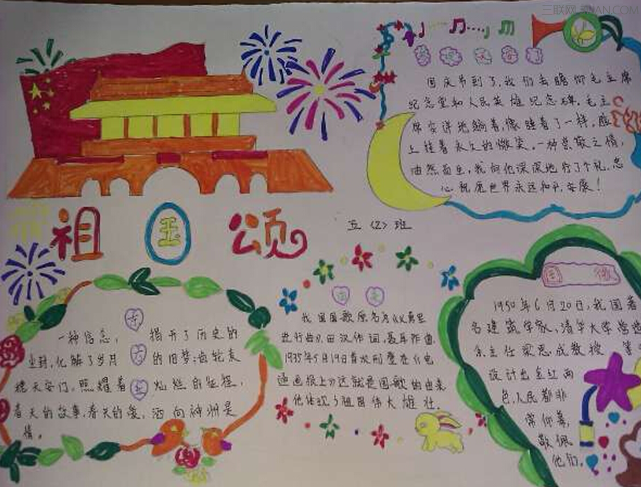 国庆节到了,我们去瞻仰毛主席
纪念堂和人民英雄纪念碑,毛主
席安详地躺着,像睡着了一样,脸
上挂着永久的微笑,一种崇敬之情,
油然而生,我向他深深地行了个礼,忠
心祝愿世界永远和平安康!
祖国颂
五〈2〉班
一种信念, 揭开了历史的
尘封,化解了岁月 的旧梦;齿轮表
穗天安门,照耀着 灿烂的征程,
春天的故事,春天的爱,洒向神州是
情。
国歌
我国国歌原名为《义勇军
进行曲》,田汉作词,聂耳作曲,
1935年5月19日首次刊登在《电
通画报上》这就是国歌的由来
他体现了祖国伟大雄壮
国徽
1950年6月20日,我国著
名建筑学家、清华大学营
系主任梁思成教授
设计出金红两
色,人民都非
常仰慕,
敬佩
他们。